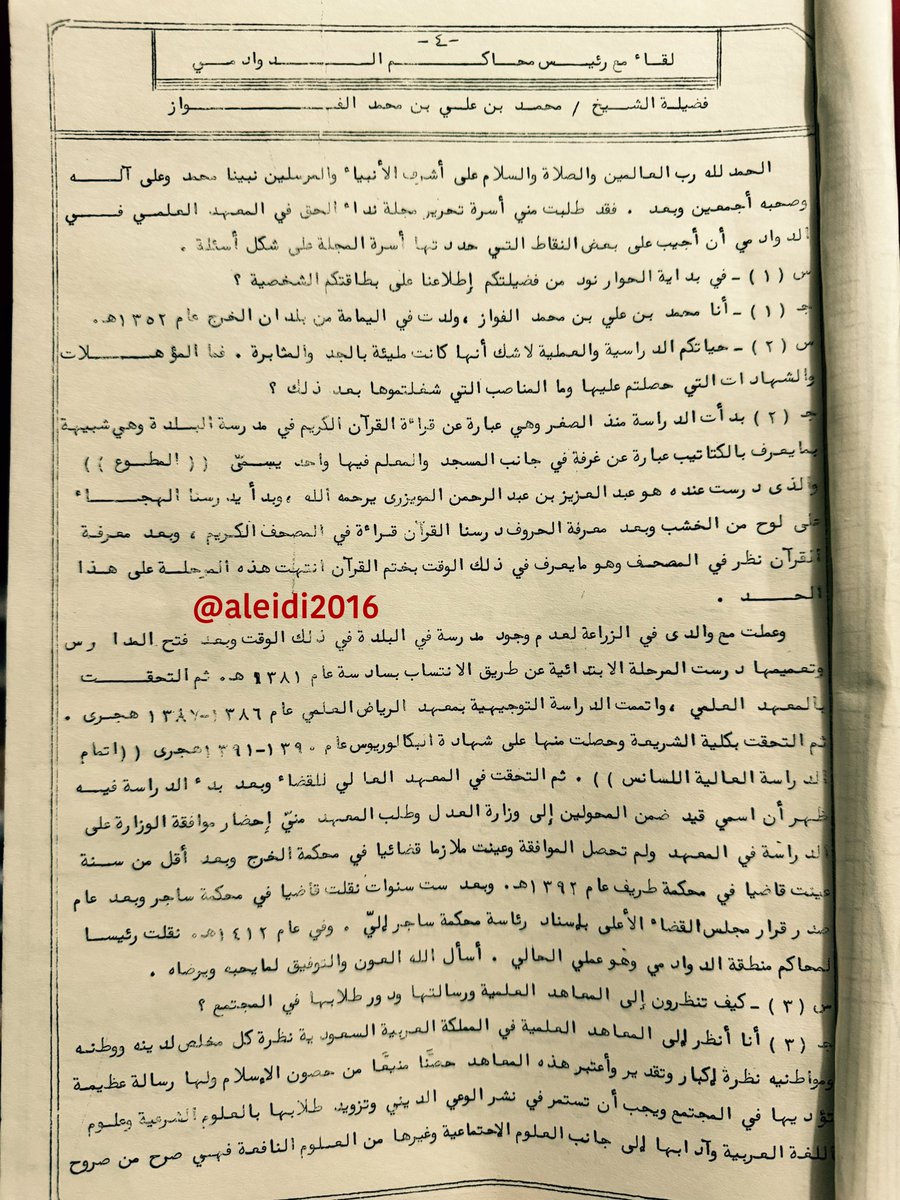 -٤-
لقاء مع رئيس محاكم الدوادمي
فضيلة الشيخ / محمد بن علي بن محمد الفواز
الحمد لله رب العالمين والصلاة والسلام على أشرف الأنبياء والمرسلين نبينا محمد وعلى آله
وصحبه أجمعين وبعد . فقد طلبت مني أسرة تحرير مجلة نداء الحق في المعهد العلمي في
الدوادمي أن أجيب على بعض النقاط التي حددتها أسرة المجلة على شكل أسئلة .
س (١) - في بداية الحوار نود من فضيلتكم إطلاعنا على بطاقتكم الشخصية ؟
جـ (١) - أنا محمد بن علي بن محمد الفواز ، ولدت في اليمامة من بلدان الخرج عام ١٣٥٢هـ .
س (٢) - حياتكم الدراسية والعملية لاشك أنها كانت مليئة بالجد والمثابرة . فما المؤهلات
والشهادات التي حصلتم عليها وما المناصب التي شغلتموها بعد ذلك ؟
جـ (٢) بدأت الدراسة منذ الصغر وهي عبارة عن قراءة القرآن الكريم في مدرسة البلدة وهي شبيهة
بما يعرف بالكتاتيب عبارة عن غرفة في جانب المسجد والمعلم فيها واحد يسمّى (( المطوع ))
والذى درست عنده هو عبد العزيز بن عبد الرحمن المويزرى يرحمه الله ، وبدأ يدرسنا الهجاء
على لوح من الخشب وبعد معرفة الحروف درسنا القرآن قراءة في المصحف الكريم ، وبعد معرفة
القرآن نظر في المصحف وهو مايعرف في ذلك الوقت بختم القرآن انتهت هذه المرحلة على هذا
الحد .
@aleidi2016
وعملت مع والدى في الزراعة لعدم وجود مدرسة في البلدة في ذلك الوقت وبعد فتح المدارس
وتعميمها درست المرحلة الابتدائية عن طريق الانتساب بسادسة عام ١٣٨١ هـ . ثم التحقت
بالمعهد العلمي ، واتممت الدراسة التوجيهية بمعهد الرياض العلمي عام ١٣٨٦-١٣٨٧ هجرى .
ثم التحقت بكلية الشريعة وحصلت منها على شهادة البكالوريوس عام ١٣٩٠-١٣٩١هجرى ((اتمام
الدراسة العالية اللسانس )) . ثم التحقت في المعهد العالي للقضاء وبعد بدء الدراسة فيه
ظهر أن اسمي قيد ضمن المحولين إلى وزارة العدل وطلب المعهد منيّ إحضار موافقة الوزارة على
الدراسة في المعهد ولم تحصل الموافقة وعينت ملازما قضائيا في محكمة الخرج وبعد أقل من سنة
عينت قاضيا في محكمة طريف عام ١٣٩٢هـ . وبعد ست سنوات نقلت قاضيا في محكمة ساجر وبعد عام
صدر قرار مجلس القضاء الأعلى بإسناد رئاسة محكمة ساجر إليّ . وفي عام ١٤١٢هـ . نقلت رئيسا
لمحاكم منطقة الدوادمي وهو عملي الحالي . أسأل الله العون والتوفيق لمايحبه ويرضاه .
س (٣) - كيف تنظرون إلى المعاهد العلمية ورسالتها ودور طلابها في المجتمع ؟
جـ (٣) أنا أنظر إلى المعاهد العلمية في المملكة العربية السعودية نظرة كل مخلص لدينه ووطنه
ومواطنيه نظرة إكبار وتقدير وأعتبر هذه المعاهد حصنًا منيعًا من حصون الإسلام ولها رسالة عظيمة
تؤديها في المجتمع ويجب أن تستمر في نشر الوعي الديني وتزويد طلابها بالعلوم الشرعية وعلوم
اللغة العربية وآدابها إلى جانب العلوم الاجتماعية وغيرها من العلوم النافعة فهي صرح من صروح